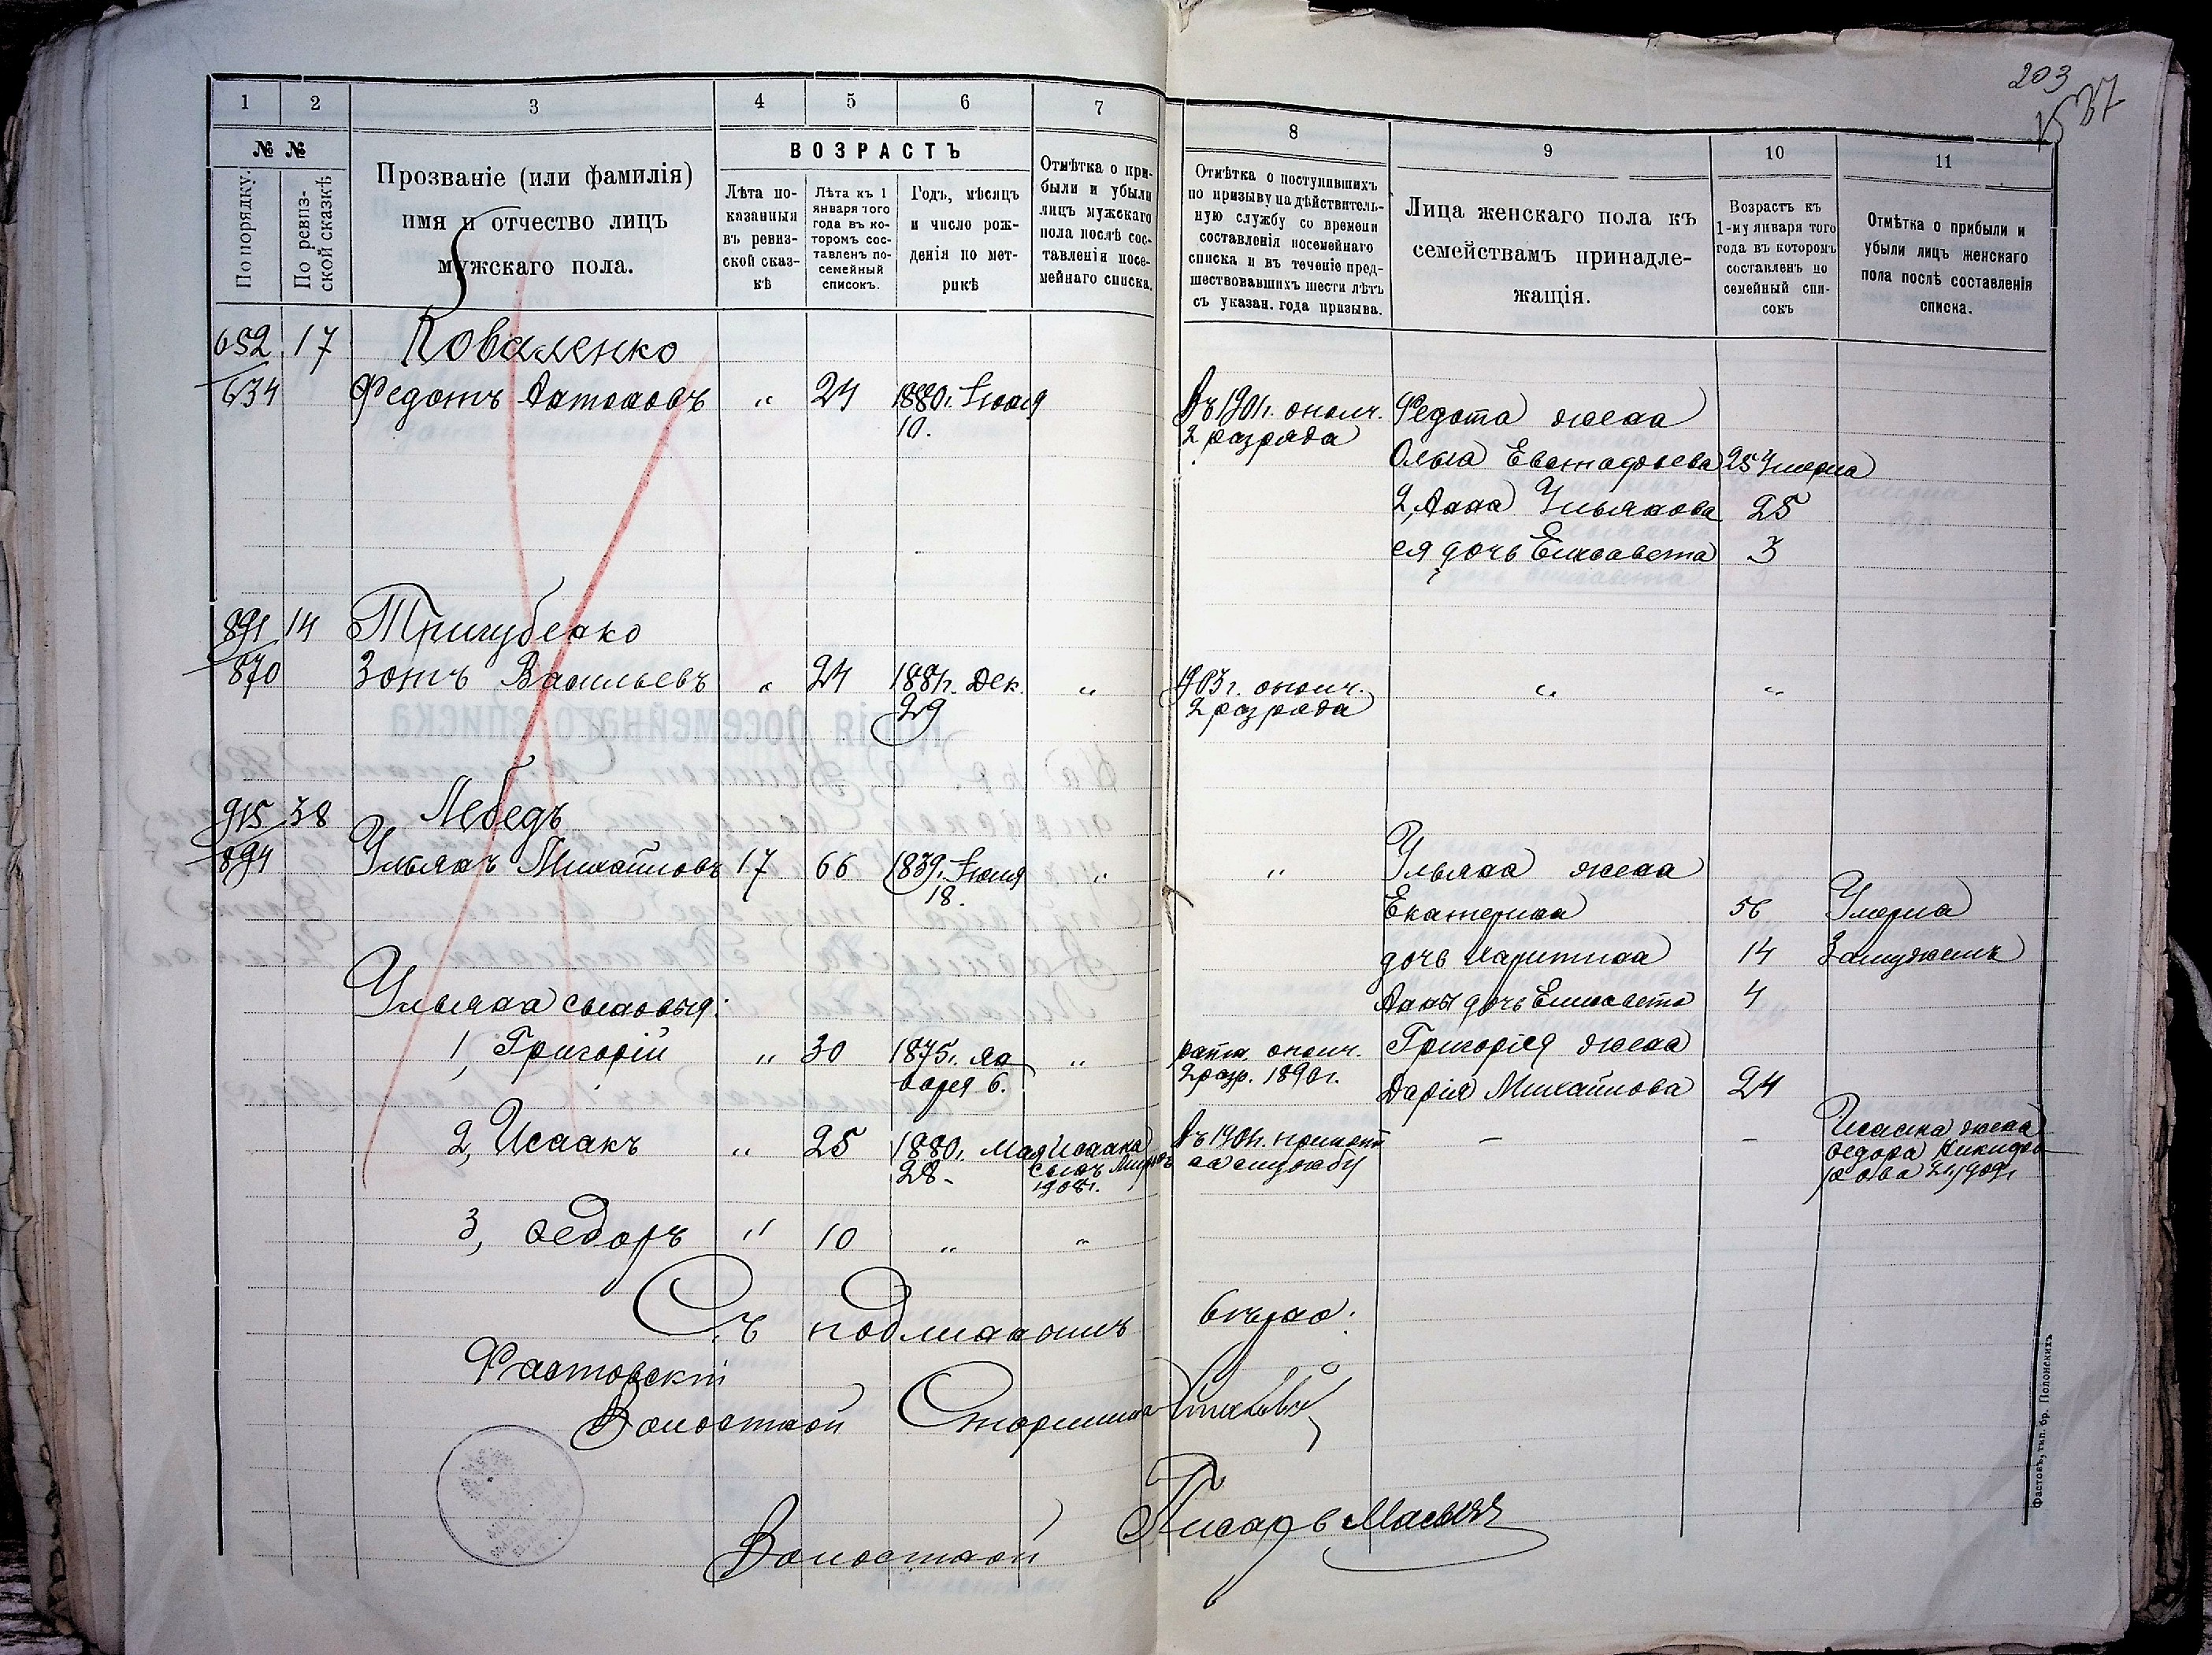 203
1 2 3 4 5 6 7 8 9 10 11
№ №
По порядку.
По ревиз-
ской сказкѣ
Прозваніе (или фамилія)
имя и отчество лицъ
мужскаго пола.
ВОЗРАСТЪ
Лѣта по-
казанныя
въ ревиз-
ской сказ-
кѣ
Лѣта къ 1
января того
года въ ко-
торомъ сос-
тавленъ по-
семейный
списокъ.
Годъ, мѣсяцъ
и число рож-
денія по мет-
рикѣ
Отмѣтка о при-
были и убыли
лицъ мужскаго
пола послѣ сос-
тавленія посе-
мейнаго списка.
Отмѣтка о поступившихъ
по призыву на дѣйствитель-
ную службу со времени
составленія посемейнаго
списка и въ теченіе пред-
шествовавшихъ шести лѣтъ
съ указан. года призыва.
Лица женскаго пола къ
семействамъ принадле-
жащія.
Возрастъ къ
1-му января того
года въ которомъ
составленъ по
семейный спи-
сокъ
Отмѣтка о прибыли и
убыли лицъ женскаго
пола послѣ составленія
списка.
652 17 Коваленко
634 Федотъ Антоновъ " 24 1880г. Іюня Въ 1901г. ополч. Федота жена
10. 2 разряда
Ольга Евстафьева 25 Умерла
2, Анна Ульянова 25
ея дочь Елисавета 3
891 14 Тригубенко
870 Зотъ Васильевъ " 24 1881г. Дек. " 1903г. ополч. " "
29 2 разряда
915 38 Лебедь
894 Ульянъ Михайловъ 17 66 1839г. Іюня " " Ульяна жена
18. Екатерина 56 Умерла
дочь Харитина 14 Замужемъ
Ульяна сыновья: Анны дочь Елисавета 4
1, Григорій " 30 1875г. ян- " ратн. ополч. Григорія жена
варя 6. 2 разр. 1896г. Дарія Михайлова 24
2, Исаакъ " 25 1880г. Мая Исаака Въ 1901г. принятъ — — Исаака жена
28 сынъ на службу Федора Никифо-
1908г. рова 21 1909г.
3, Федоръ " 10 " "
Съ подлиннымъ вѣрно:
Фастовскій
Волостной Старшина
Волостной Писарь
Фастовъ, тип. бр. Полонскихъ